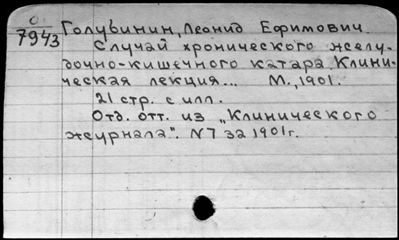 0
7943
Голубинин, Леонид Ефимович.
Случай хронического желу-
дочно-кишечного катара. Клини-
ческая лекция... М., 1901.
21 стр. с илл.
Отд. отт. из „Клинического
журнала". N7 за 1901г.